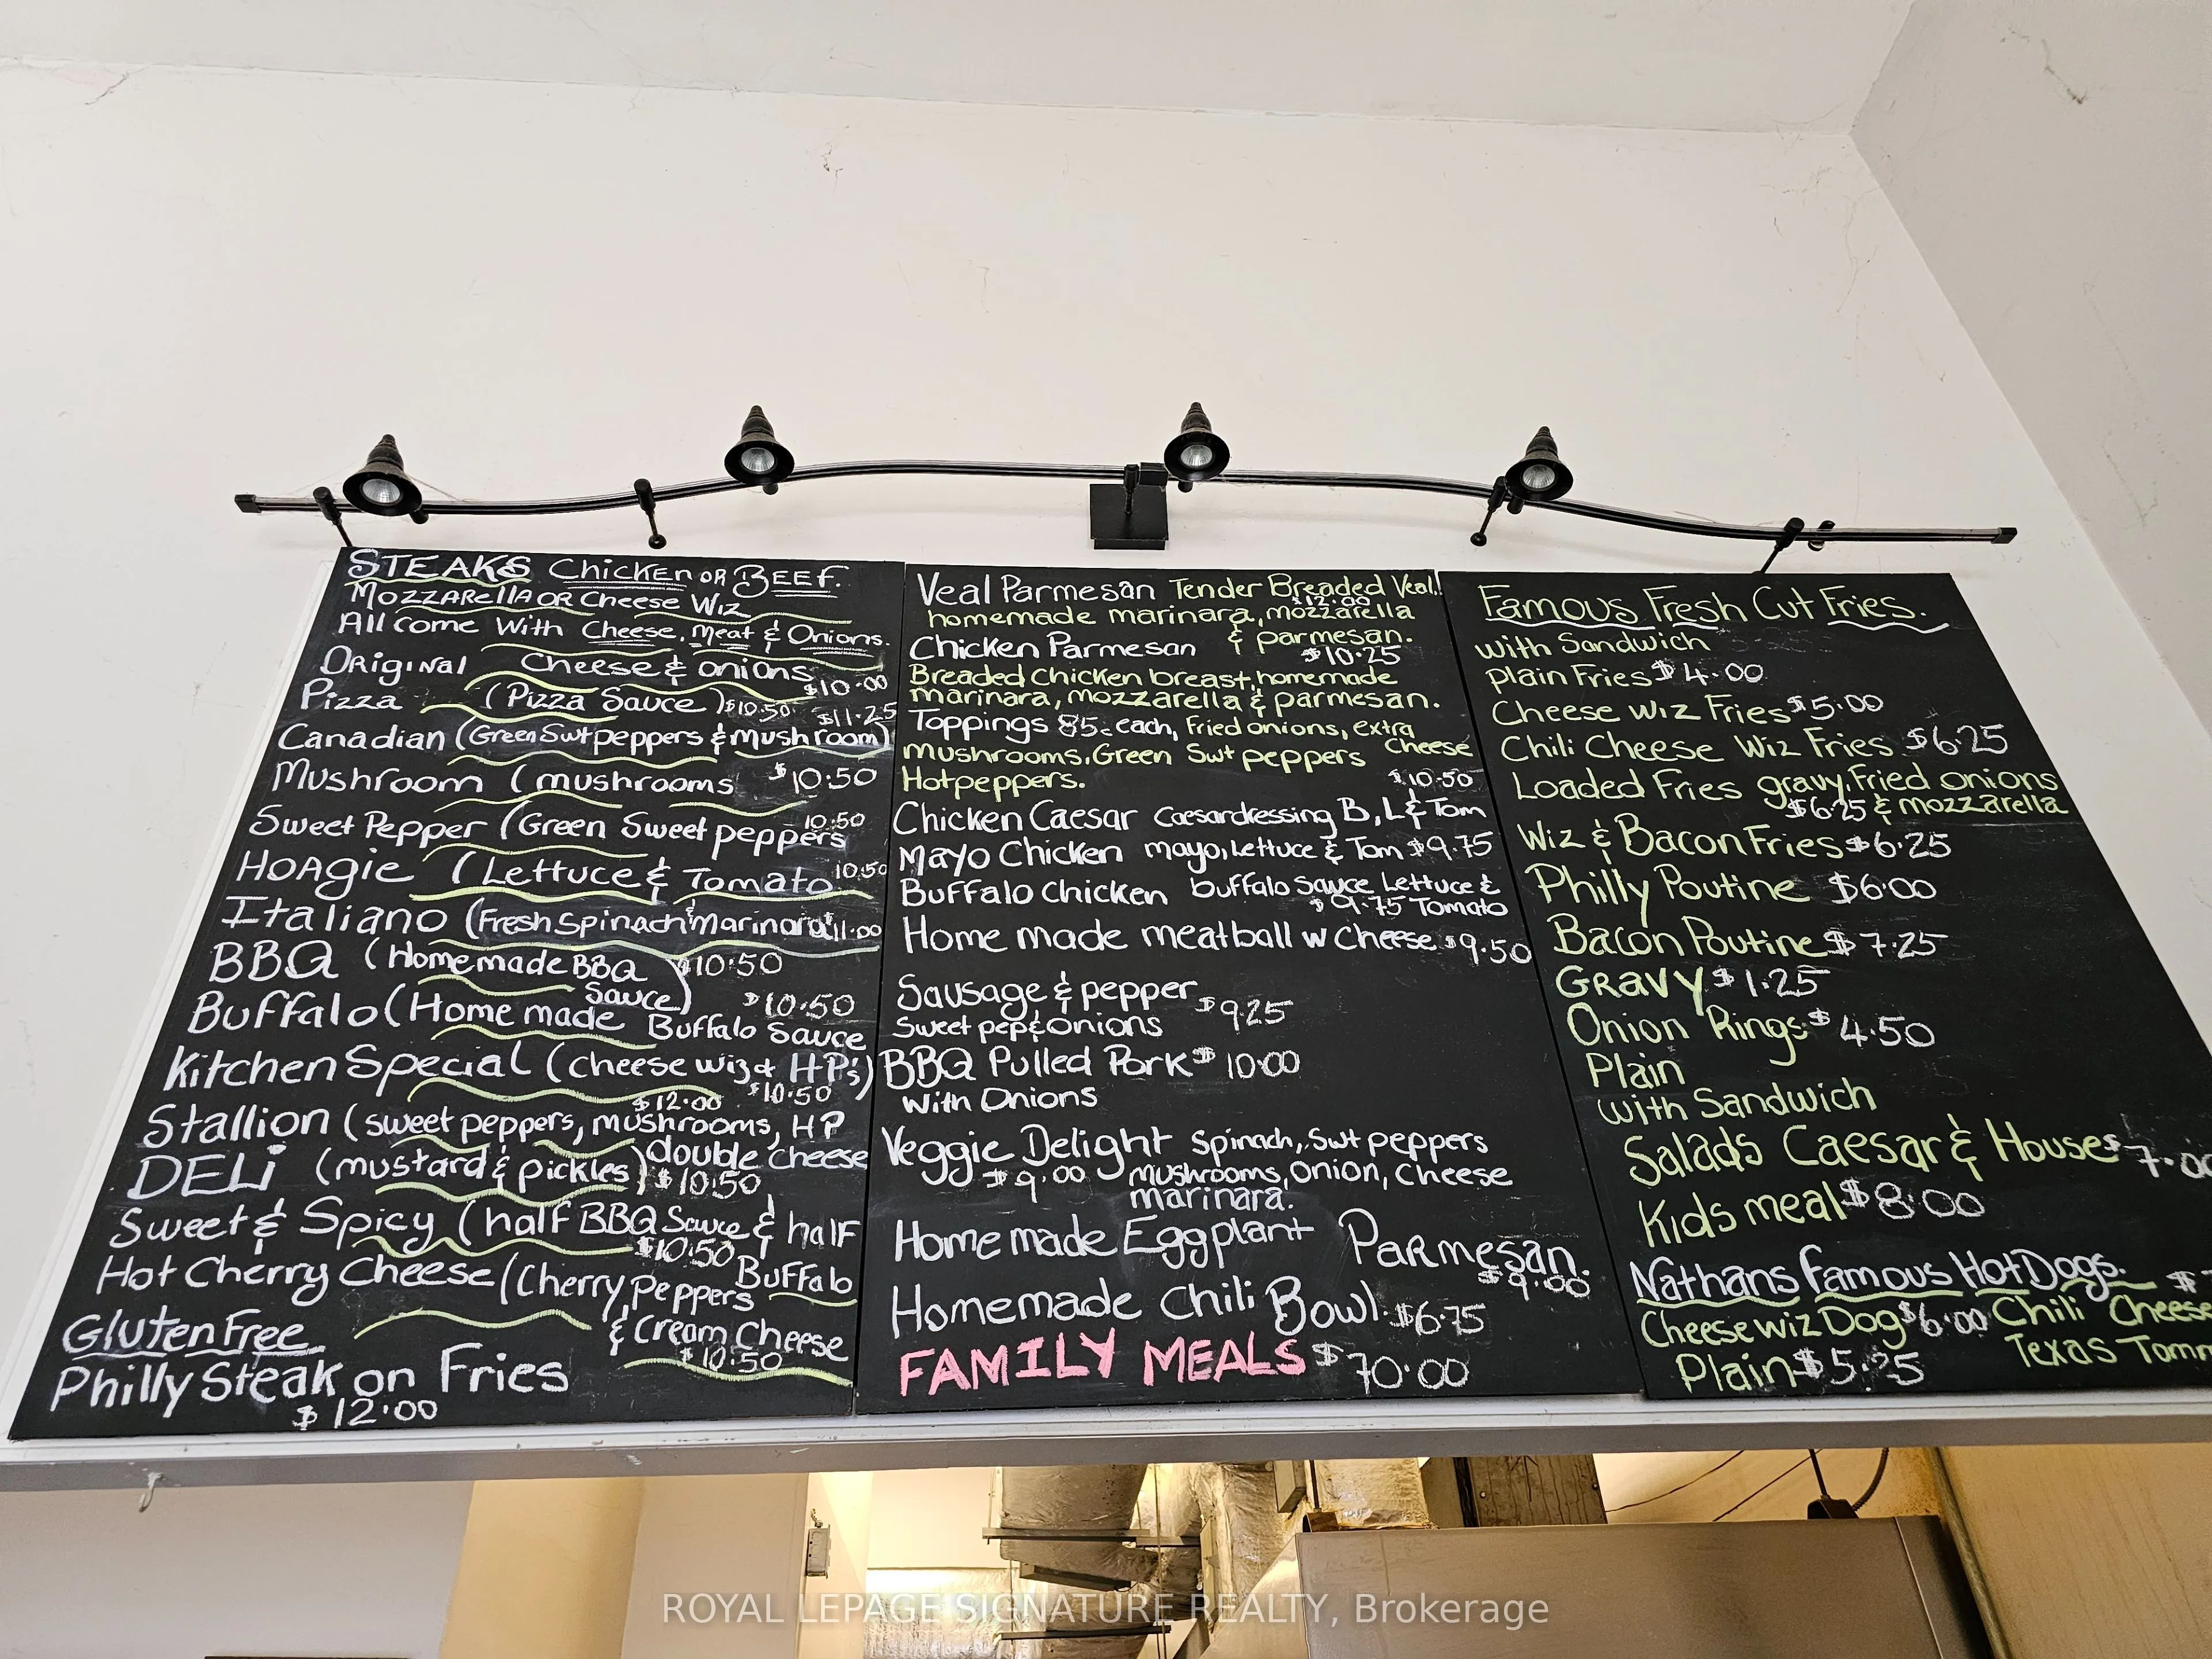 STEAKS Chicken OR BEEF.
MOZZARella OR Cheese Wiz
All come With Cheese, Meat & Onions.
ORiginal Cheese & onions
$10.00
Pizza (Pizza Sauce) $10.50 $11.25
Canadian (Green Swt peppers & Mushroom)
Mushroom (mushrooms $10.50
Sweet Pepper (Green Sweet peppers 10.50
HOAgie (Lettuce & Tomato 10.50
Italiano (Fresh Spinach & Marinara 11.00
BBQ (Homemade BBQ Sauce) $10.50
Buffalo (Home made Buffalo Sauce $10.50
Kitchen Special (cheese wiz & HP's)
$12.00 $10.50
Stallion (sweet peppers, mushrooms, HP
double cheese
DELi (mustard & pickles) $10.50
Sweet & Spicy (half BBQ Sauce & half
$10.50 Buffalo
Hot Cherry Cheese (Cherry Peppers
& Cream Cheese
$10.50
Gluten Free
Philly Steak on Fries
$12.00
Veal Parmesan Tender Breaded Veal,
$12.00
homemade marinara, mozzarella
& parmesan.
Chicken Parmesan $10.25
Breaded Chicken breast, homemade
marinara, mozzarella & parmesan.
Toppings 85c each, Fried onions, extra
cheese
mushrooms, Green Swt peppers
Hotpeppers. $10.50
Chicken Caesar Caesardressing B, L & Tom
Mayo Chicken mayo, lettuce & Tom $9.75
Buffalo Chicken buffalo sauce Lettuce &
$9.75 Tomato
Home made meatball w Cheese $9.50
Sausage & pepper $9.25
Sweet pep & onions
BBQ Pulled Pork $10.00
With Onions
Veggie Delight Spinach, Swt peppers
$9.00 mushrooms, onion, cheese
marinara.
Home made Eggplant Parmesan.
$9.00
Homemade Chili Bowl $6.75
FAMILY MEALS $70.00
Famous Fresh Cut Fries.
with Sandwich
plain Fries $4.00
Cheese Wiz Fries $5.00
Chili Cheese Wiz Fries $6.25
Loaded Fries gravy, Fried onions
$6.25 & mozzarella
Wiz & Bacon Fries $6.25
Philly Poutine $6.00
Bacon Poutine $7.25
GRAVY $1.25
Onion Rings $4.50
Plain
with Sandwich
Salads Caesar & House $7.00
Kids meal $8.00
Nathans Famous HotDogs. $
Cheese wiz Dog $6.00 Chili Cheese
Texas Tomm
Plain $5.25
ROYAL LEPAGE SIGNATURE REALTY, Brokerage